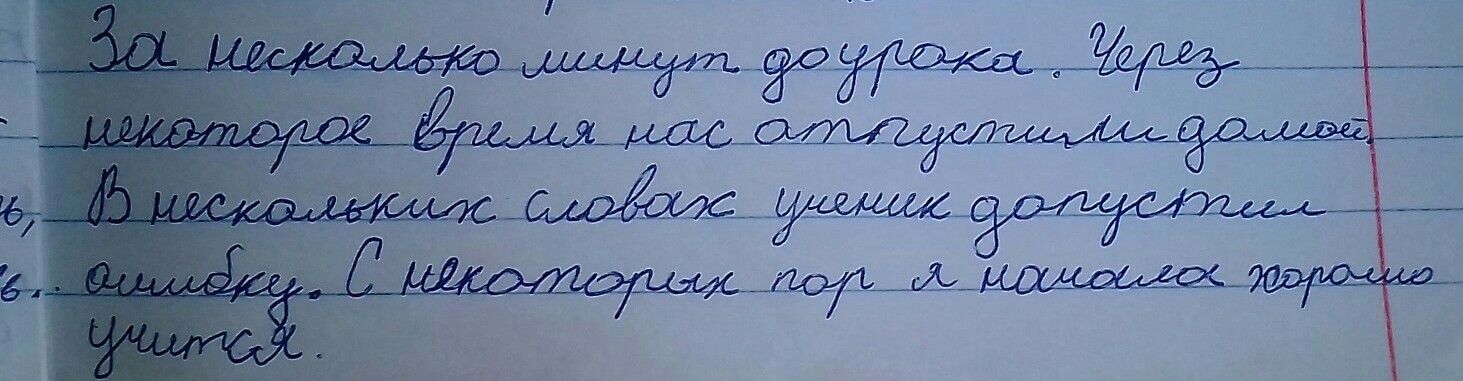 За несколько минут до урока. Через
некоторое время нас атпустили домой.
В нескольких словах ученик допустил
ошибку. С некоторых пор я начала хорошо
учится.